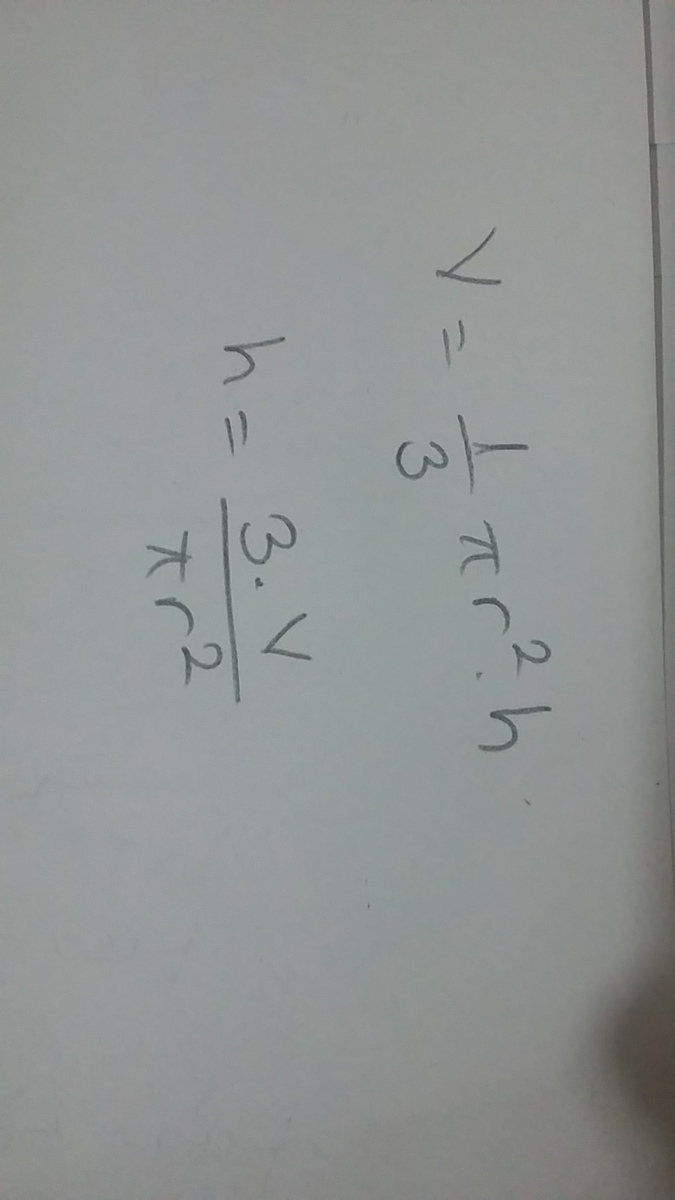 V = 1/3 π r². h
h = 3. V / π r²